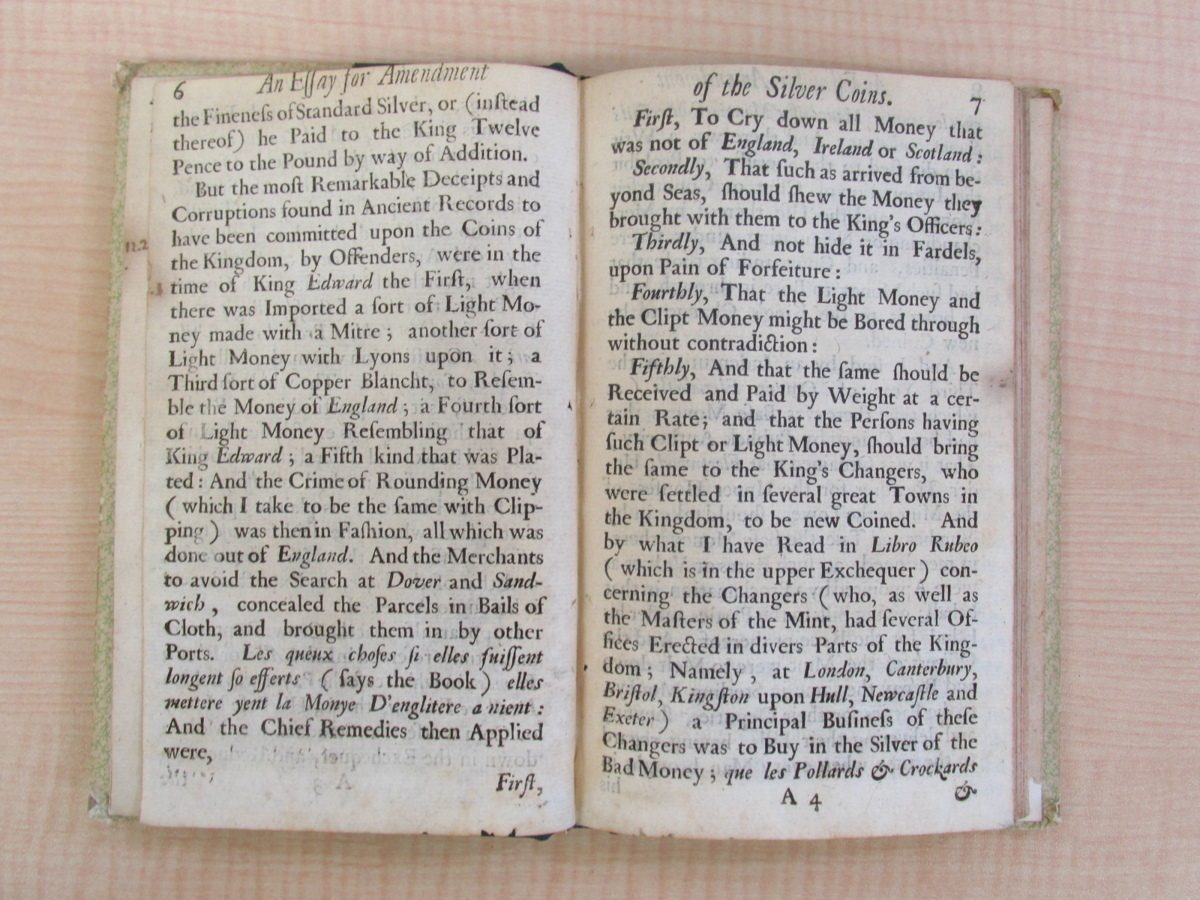 6
An Eſſay for Amendment
the Fineneſs of Standard Silver, or (inſtead
thereof) he Paid to the King Twelve
Pence to the Pound by way of Addition.
But the moſt Remarkable Deceipts and
Corruptions found in Ancient Records to
have been committed upon the Coins of
the Kingdom, by Offenders, were in the
time of King Edward the Firſt, when
there was Imported a ſort of Light Mo-
ney made with a Mitre ; another ſort of
Light Money with Lyons upon it ; a
Third ſort of Copper Blancht, to Reſem-
ble the Money of England ; a Fourth ſort
of Light Money Reſembling that of
King Edward ; a Fifth kind that was Pla-
ted : And the Crime of Rounding Money
( which I take to be the ſame with Clip-
ping ) was then in Faſhion, all which was
done out of England. And the Merchants
to avoid the Search at Dover and Sand-
wich , concealed the Parcels in Bails of
Cloth, and brought them in by other
Ports. Les queux choſes ſi elles fuiſſent
longent ſo efferts ( ſays the Book ) elles
mettere yent la Monye D'englitere a nient :
And the Chief Remedies then Applied
were,
Firſt,
of the Silver Coins.
7
Firſt, To Cry down all Money that
was not of England, Ireland or Scotland :
Secondly, That ſuch as arrived from be-
yond Seas, ſhould ſhew the Money they
brought with them to the King's Officers :
Thirdly, And not hide it in Fardels,
upon Pain of Forfeiture :
Fourthly, That the Light Money and
the Clipt Money might be Bored through
without contradiction :
Fifthly, And that the ſame ſhould be
Received and Paid by Weight at a cer-
tain Rate; and that the Perſons having
ſuch Clipt or Light Money, ſhould bring
the ſame to the King's Changers, who
were ſettled in ſeveral great Towns in
the Kingdom, to be new Coined. And
by what I have Read in Libro Rubeo
( which is in the upper Exchequer ) con-
cerning the Changers ( who, as well as
the Maſters of the Mint, had ſeveral Of-
fices Erected in divers Parts of the King-
dom ; Namely , at London, Canterbury,
Briſtol, Kingſton upon Hull, Newcaſtle and
Exeter ) a Principal Buſineſs of theſe
Changers was to Buy in the Silver of the
Bad Money ; que les Pollards & Crockards
A 4
&